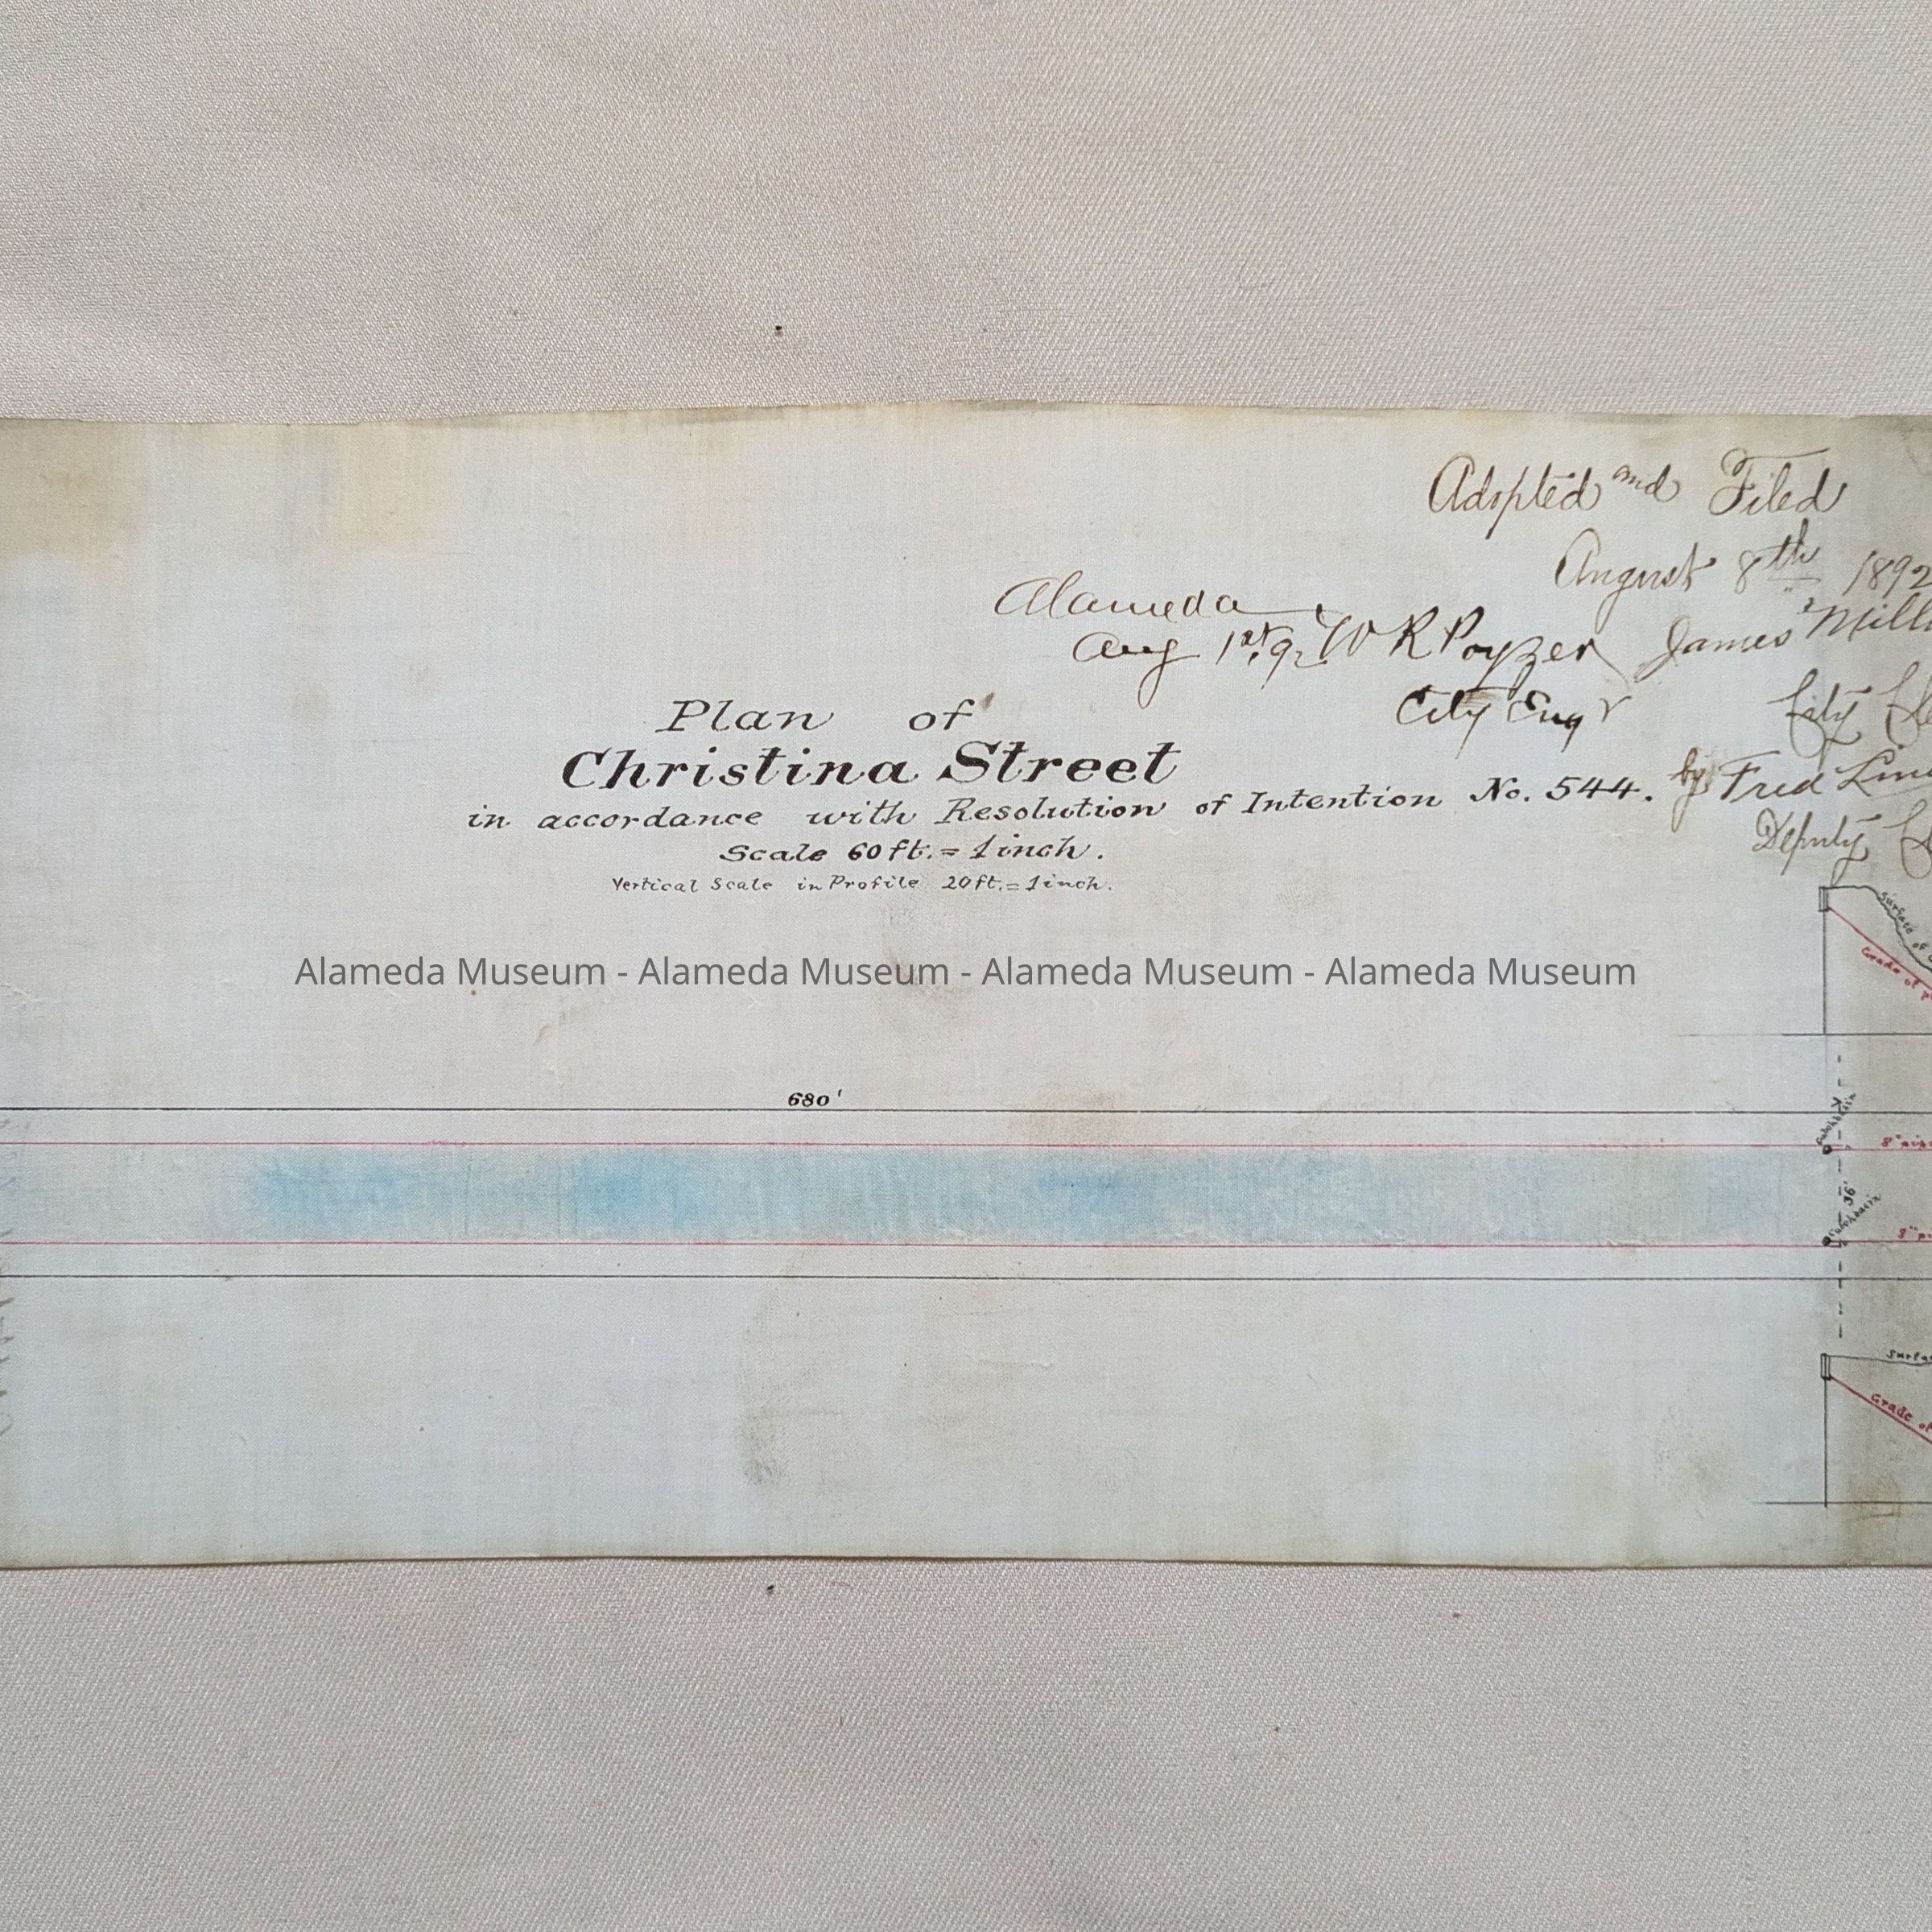 Adopted and Filed
August 8th 1892
Alameda
Aug 1st, 92 W R Poyzer
City Engr
James Mill
City Cl
by Fred Lin
Deputy Cl
Plan of
Christina Street
in accordance with Resolution of Intention No. 544.
Scale 60 ft. = 1 inch.
Vertical Scale in Profile 20 ft. = 1 inch.
Surface of
Grade of
Alameda Museum - Alameda Museum - Alameda Museum - Alameda Museum
680'
Catchbasin
8"
36'
Catchbasin
8"
Surfa
Grade of